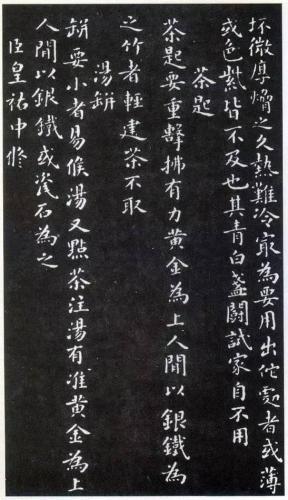 坯微厚熁之久熱難冷㝡為要用出佗處者或薄
或色紫皆不及也其青白盞鬭試家自不用
茶匙
茶匙要重擊拂有力黃金為上人間以銀鐵為
之竹者輕建茶不取
湯缾
缾要小者易候湯又點茶注湯有准黃金為上
人間以銀鐵或瓷石為之
臣皇祐中脩